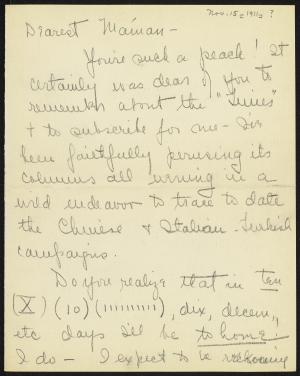 Nov. 15 - 1911 - ?
Dearest Maman -
You're such a peach! It
certainly was dear of you to
remember about the "Times"
+ to subscribe for me - I've
been faithfully perusing its
columns all morning in a
wild endeavor to trace to date
the Chinese & Italian-Turkish
campaigns.
Do you realize that in ten
(X) (10) (1111111111), dix, decem,
etc days I'll be to home.
I do - I expect to be reckoning